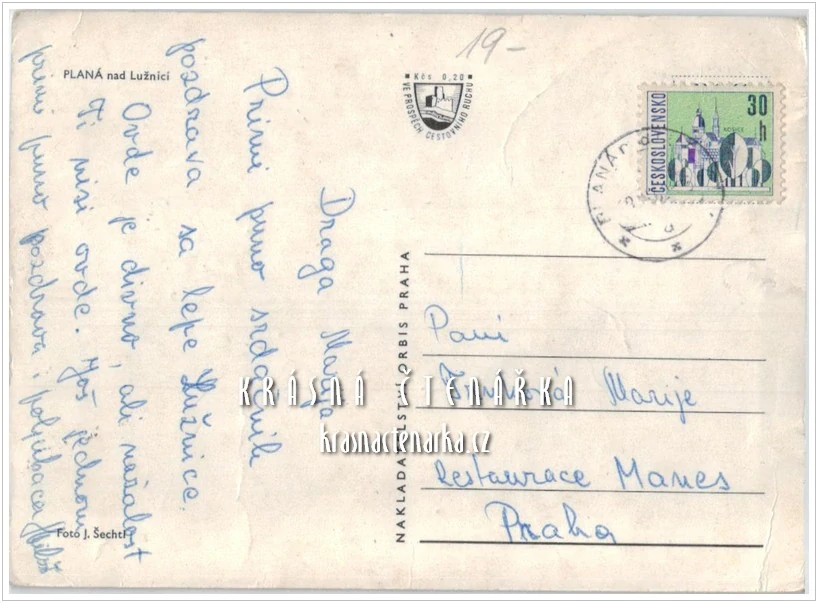 PLANÁ nad Lužnicí
Draga Marija
Primi puno srdačnih
pozdrava sa lepe Lužnice.
Ovde je divno, ali nažalost
Ti nisi ovde. Još jednom
primi puno pozdrava i poljubaca
Foto J. Šechtl
19-
Kčs 0,20
VE PROSPĚCH CESTOVNÍHO RUCHU
NAKLADATELSTVÍ ORBIS PRAHA
ČESKOSLOVENSKO
30 h
PLANÁ
Paní
Marije
Restaurace Manes
Praha
KRÁSNÁ ČTENÁŘKA
krasnactenarka.cz